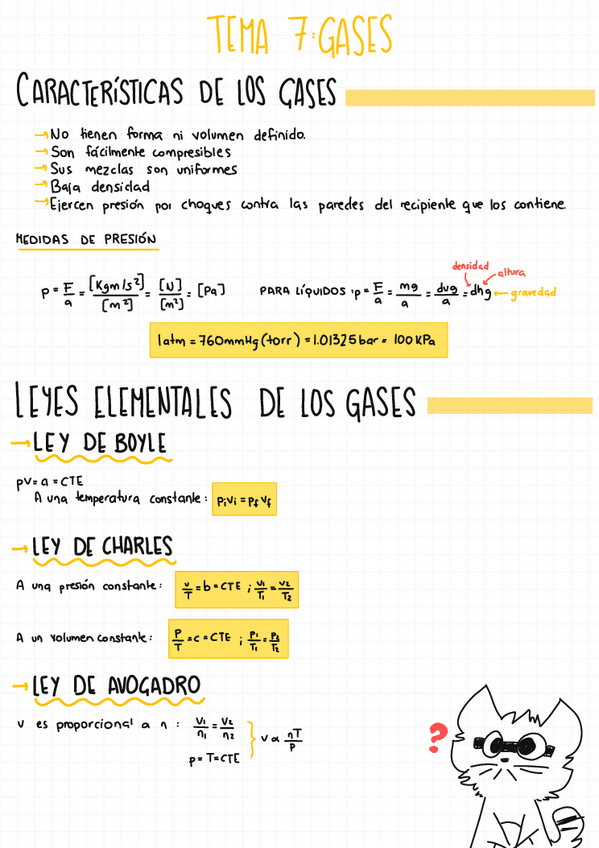 TEMA 7: GASES
CARACTERÍSTICAS DE LOS GASES
→ No tienen forma ni volumen definido.
→ Son fácilmente compresibles
→ Sus mezclas son uniformes
→ Baja densidad
→ Ejercen presión por choques contra las paredes del recipiente que los contiene.
MEDIDAS DE PRESIÓN
densidad altura
p = F/a = [Kgm/s²]/[m²] = [N]/[m²] = [Pa] PARA LÍQUIDOS: p = F/a = mg/a = dvg/a = dhg ← gravedad
1atm = 760mmHg (torr) = 1.01325 bar = 100 KPa
LEYES ELEMENTALES DE LOS GASES
→ LEY DE BOYLE
pV = a = CTE
A una temperatura constante: PiVi = Pf Vf
→ LEY DE CHARLES
A una presión constante: V/T = b = CTE ; V1/T1 = V2/T2
A un volumen constante: P/T = c = CTE ; P1/T1 = P2/T2
→ LEY DE AVOGADRO
V es proporcional a n: V1/n1 = V2/n2 } V ∝ nT/P
p = T = CTE
?